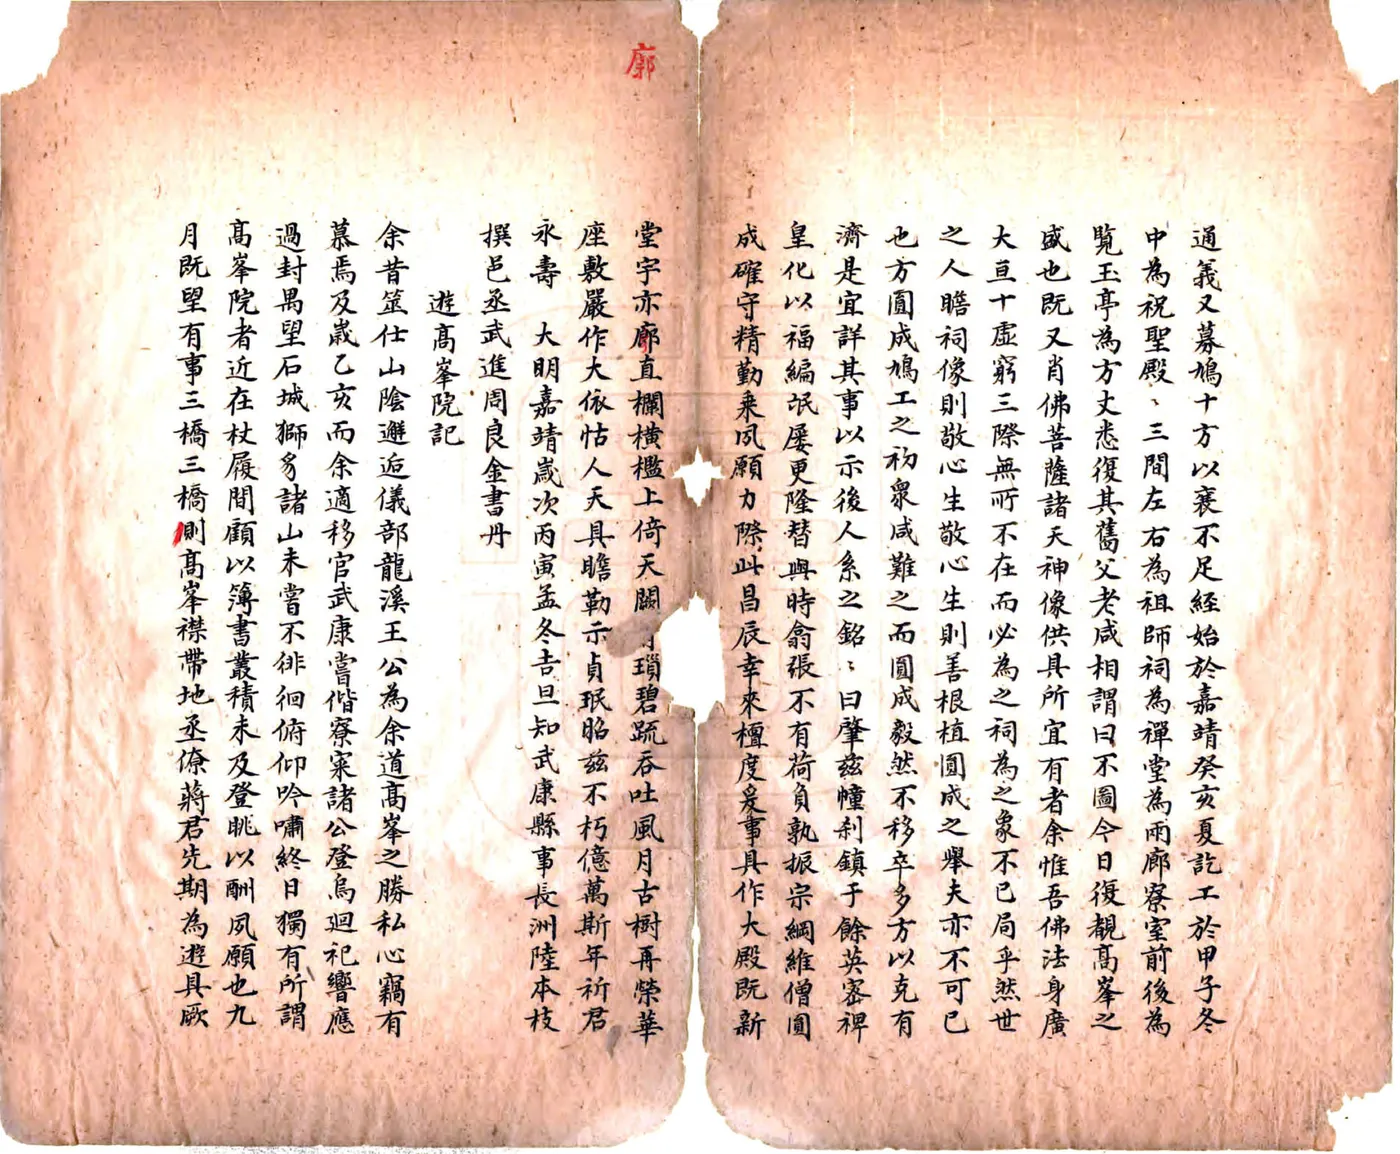 通義又募鳩十方以裒不足經始於嘉靖癸亥夏訖工於甲子冬
中為祝聖殿〻三間左右為祖師祠為禪堂為兩廊寮室前後為
覽玉亭為方丈悉復其舊父老咸相謂曰不圖今日復覩髙峯之
盛也既又肖佛菩薩諸天神像供具所宜有者余惟吾佛法身廣
大亘十虛窮三際無所不在而必為之祠為之象不已局乎然世
之人瞻祠像則敬心生敬心生則善根植圓成之舉夫亦不可已
也方圓成鳩工之初衆咸難之而圓成毅然不移卒多方以克有
濟是宜詳其事以示後人系之銘〻曰肇茲幢刹鎮于餘英宻裨
皇化以福編氓屢更隆替與時翕張不有荷負孰振宗綱維僧圓
成確守精勤乗夙願力際此昌辰幸來檀度爰事具作大殿既新
廓
堂宇亦廊直欄橫檻上倚天闕瑣碧疏吞吐風月古樹再榮華
座敷嚴作大依怙人天具瞻勒示貞珉昭茲不朽億萬斯年祈君
永壽 大明嘉靖歲次丙寅孟冬吉旦知武康縣事長洲陸本枝
撰邑丞武進周良金書丹
遊髙峯院記
余昔筮仕山陰邂逅儀部龍溪王公為余道髙峯之勝私心竊有
慕焉及歲乙亥而余適移官武康嘗偕寮寀諸公登烏迴祀響應
過封禺望石城獅豸諸山未嘗不徘徊俯仰吟嘯終日獨有所謂
髙峯院者近在杖履間顧以簿書叢積未及登眺以酬夙願也九
月既望有事三橋三橋則髙峯襟帶地丞僚蔣君先期為遊具厥